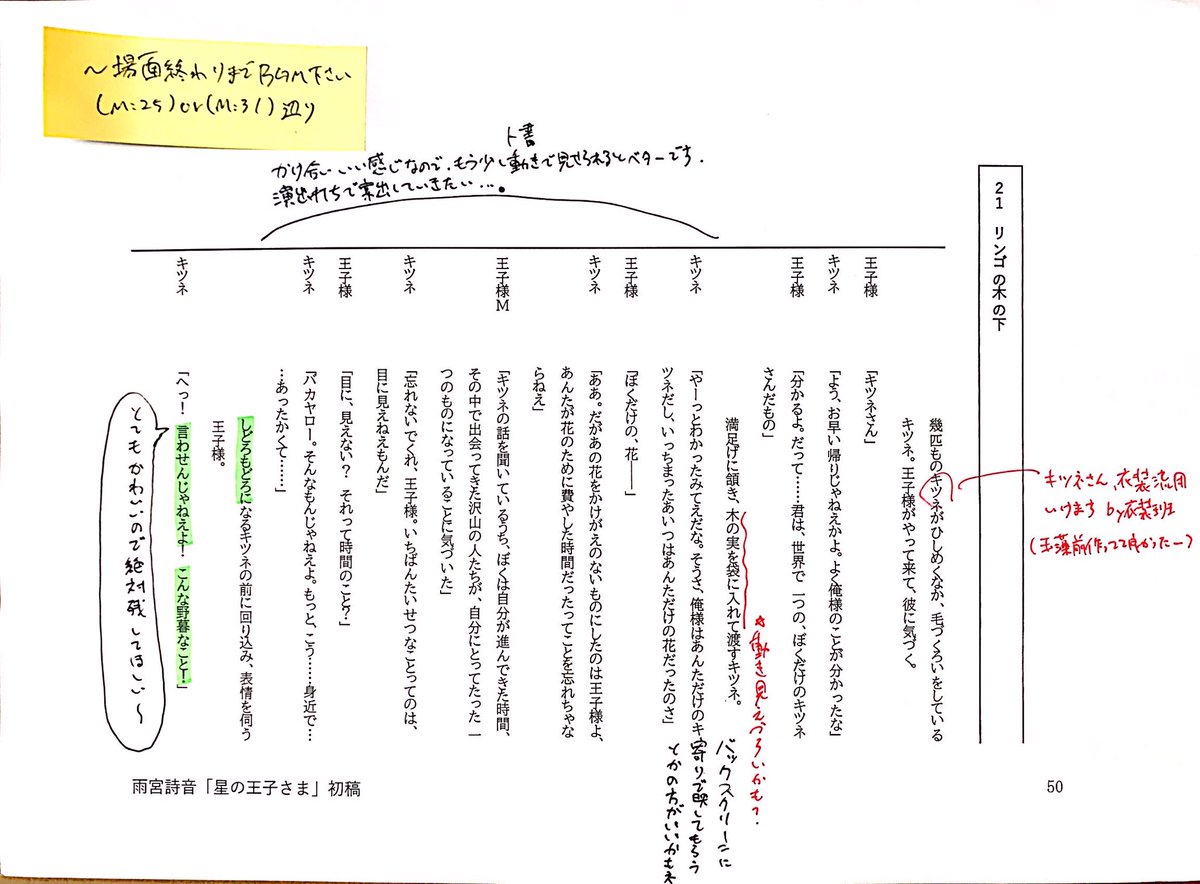 〜場面終わりまでBGM下さい
(M:25)or(M:31)辺り
ト書
かけ合いいい感じなので、もう少し動きで見せられるとベターです.
演出たちで案出していきたい….
21 リンゴの木の下
幾匹ものキツネがひしめくなか、毛づくろいをしている
キツネ。王子様がやって来て、彼に気づく。
キツネさん、衣装流用
いけます by衣装班
(玉藻前作ってて良かったー)
王子様 「キツネさん」
キツネ 「よう、お早い帰りじゃねえかよ。よく俺様のことが分かったな」
王子様 「分かるよ。だって……君は、世界で一つの、ぼくだけのキツネ
さんだもの」
満足げに頷き、木の実を袋に入れて渡すキツネ。
☆動き見えづらいかも?
バックスクリーンに
寄りで映してもらう
とかの方がいいかもネ
キツネ 「やーっとわかったみてえだな。そうさ、俺様はあんただけのキ
ツネだし、いっちまったあいつはあんただけの花だったのさ」
王子様 「ぼくだけの、花――」
キツネ 「ああ。だがあの花をかけがえのないものにしたのは王子様よ、
あんたが花のために費やした時間だったってことを忘れちゃな
らねえ」
王子様M 「キツネの話を聞いているうち、ぼくは自分が進んできた時間、
その中で出会ってきた沢山の人たちが、自分にとってたった一
つのものになっていることに気づいた」
キツネ 「忘れないでくれ、王子様。いちばんたいせつなことってのは、
目に見えねえもんだ」
王子様 「目に、見えない? それって時間のこと?」
キツネ 「バカヤロー。そんなもんじゃねえよ。もっと、こう……身近で…
…あったかくて……」
しどろもどろになるキツネの前に回り込み、表情を伺う
王子様。
キツネ 「へっ! 言わせんじゃねえよ! こんな野暮なこと!」
とてもかわいいので絶対残してほしい〜
雨宮詩音「星の王子さま」初稿
50